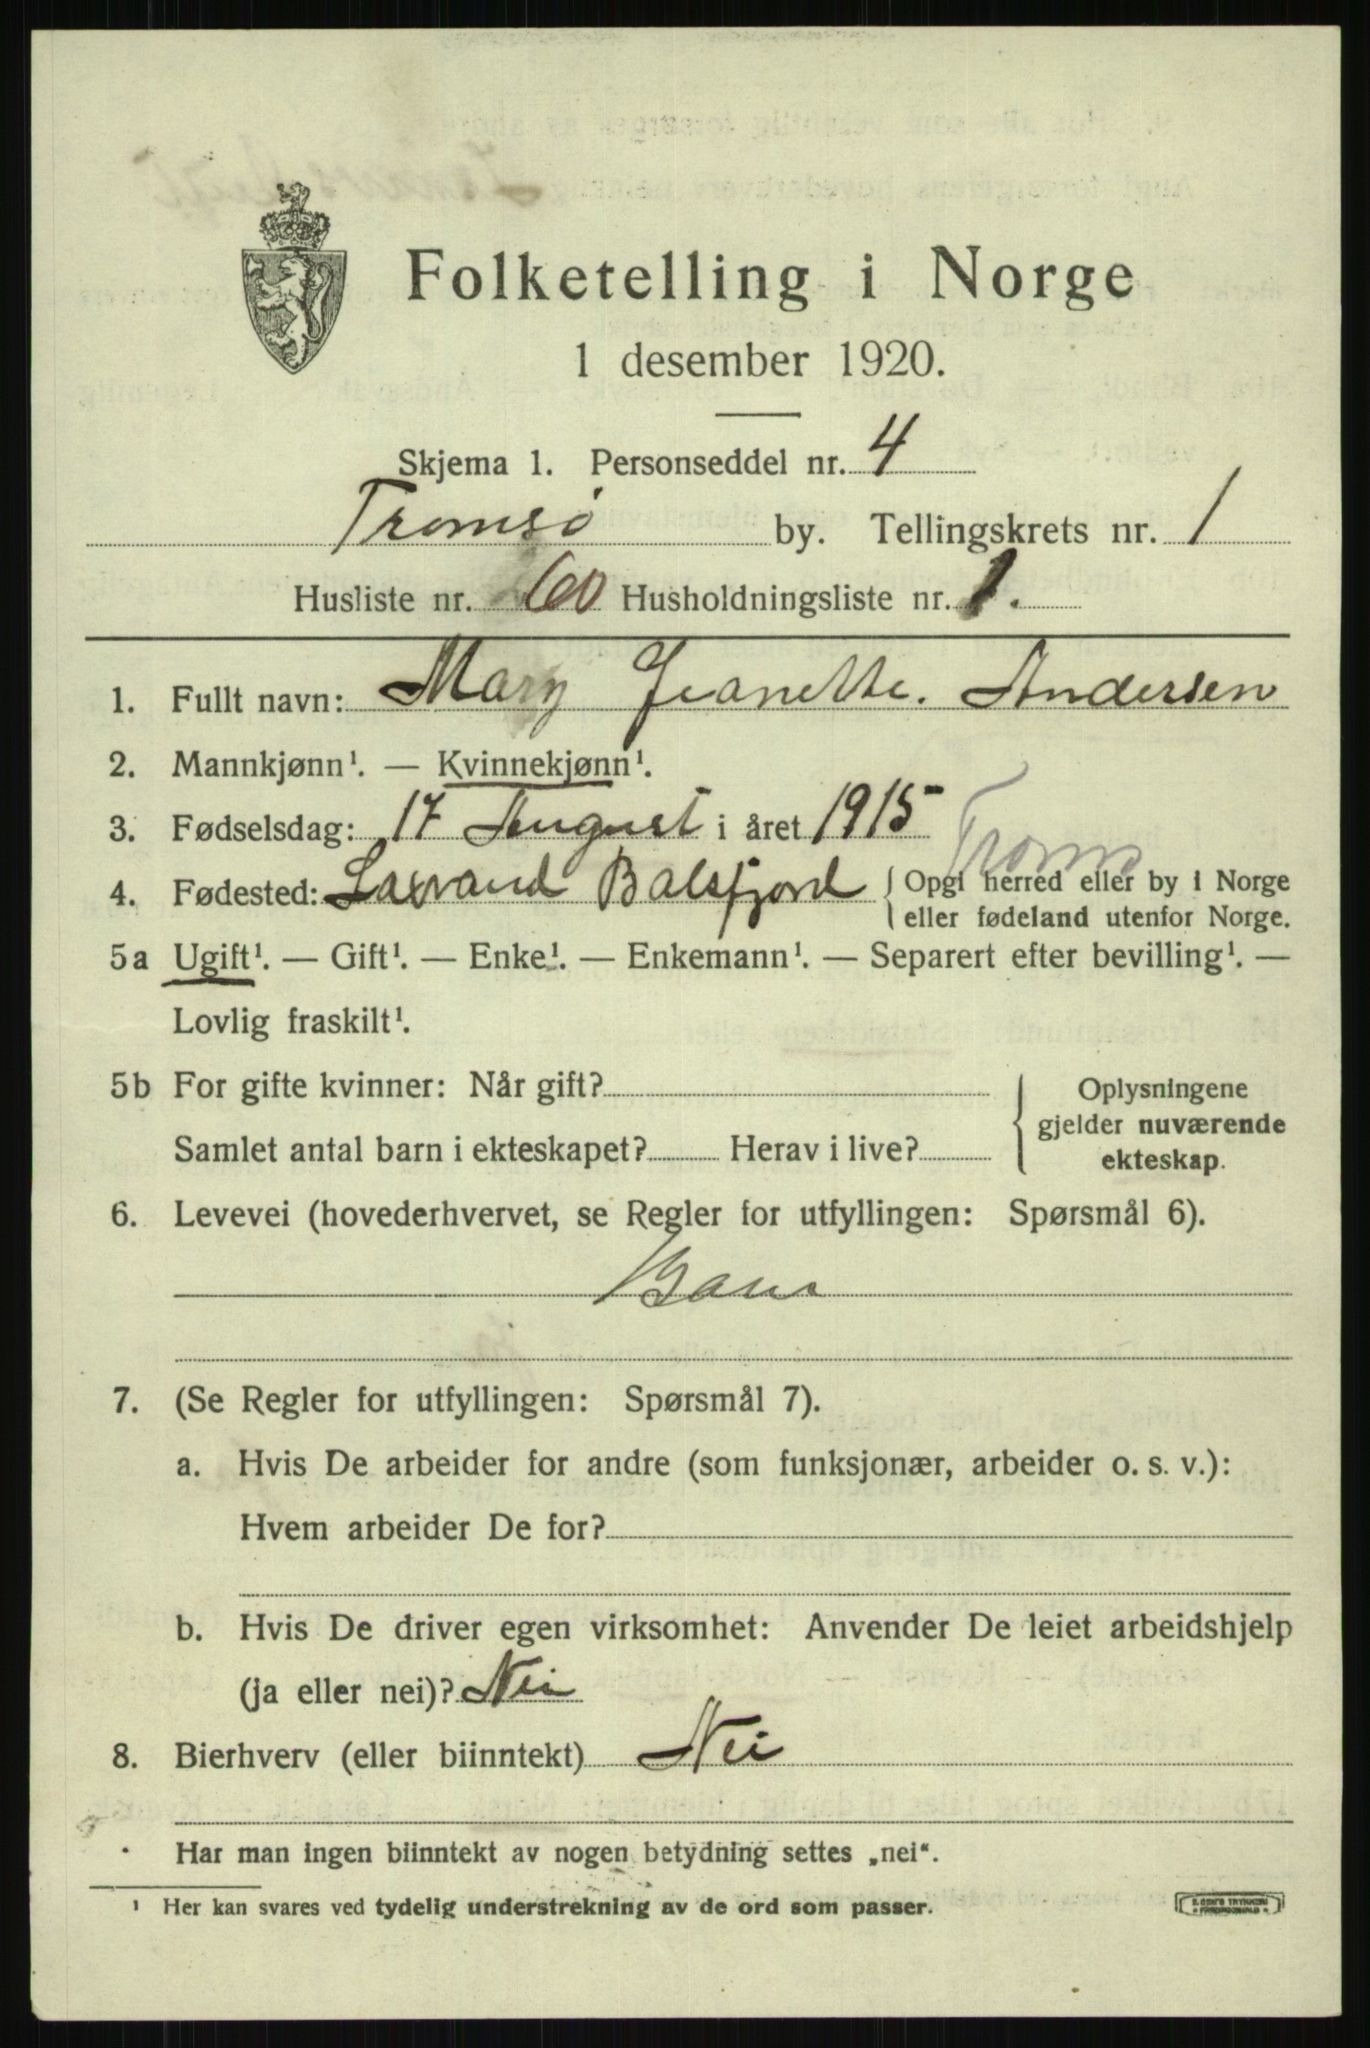 Folketelling i Norge
1 desember 1920.
Skjema 1. Personseddel nr. 4
Tromsø by. Tellingskrets nr. 1
Husliste nr. 60 Husholdningsliste nr. 1.
1. Fullt navn: Mary Jeanette. Andersen
2. Mannkjønn¹. — Kvinnekjønn¹.
3. Fødselsdag: 17 August i året 1915
Troms
4. Fødested: Laxvand Balsfjord { Opgi herred eller by i Norge
eller fødeland utenfor Norge.
5a Ugift¹. — Gift¹. — Enke¹. — Enkemann¹. — Separert efter bevilling¹. —
Lovlig fraskilt¹.
5b For gifte kvinner: Når gift?
Samlet antal barn i ekteskapet? Herav i live?
Oplysningene
gjelder nuværende
ekteskap.
6. Levevei (hovederhvervet, se Regler for utfyllingen: Spørsmål 6).
Barn
7. (Se Regler for utfyllingen: Spørsmål 7).
a. Hvis De arbeider for andre (som funksjonær, arbeider o. s. v.):
Hvem arbeider De for?
b. Hvis De driver egen virksomhet: Anvender De leiet arbeidshjelp
(ja eller nei)? Nei
8. Bierhverv (eller biinntekt) Nei
Har man ingen biinntekt av nogen betydning settes „nei“.
¹ Her kan svares ved tydelig understrekning av de ord som passer.